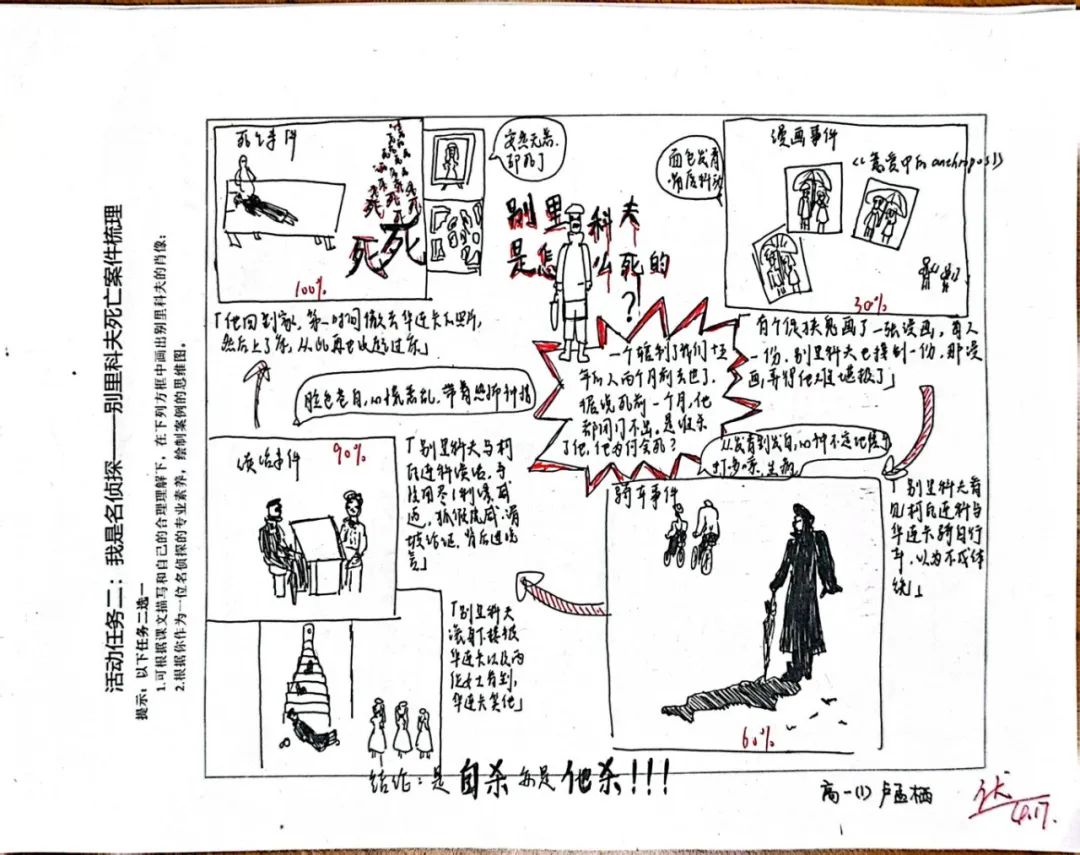 活动任务二：我是名侦探——别里科夫死亡案件梳理
提示：以下任务二选一
1.可根据课文描写和自己的合理理解下，在下列方框中画出别里科夫的肖像；
2.根据你作为一位名侦探的专业素养，绘制案例的思维图。
别里科夫
是怎么死的
？
一个辖制了我们十五
年的人两个月前去世了，
据说死前一个月，他
都闭门不出，是谁杀
了他，他为何会死？
漫画事件
《恋爱中的anthropos》
30%
面色发青
嘴唇抖动
「有个促狭鬼画了一张漫画，每人
一份，别里科夫也接到一份，那漫
画弄得他难堪极了」
从发青到发白，心神不定地搓手
打哆嗦，生病
骑车事件
60%
「别里科夫看
见柯瓦连科与
华连卡骑自行
车，以为不成体
统」
谈话事件
90%
「别里科夫与柯
瓦连科谈话，手
段用尽：利诱，威
迫，狐假虎威，谓
进谗
言」
「别里科夫
滚下楼梯被
华连卡以及两
位女士看到，
华连卡笑他」
脸色苍白，心慌意乱，带着恐怖神情
死亡事件
死
死
死
死
100%
突然无器，
却死了
「他回到家，第一时间撤去华连卡的照片，
然后上了床，从此再也没起过床」
结论：是自杀每是他杀!!!
高一(1) 卢孟栖
4.17.